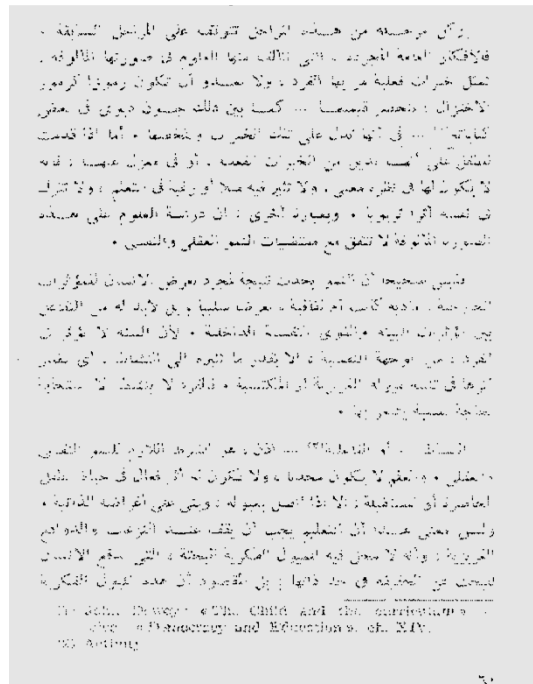 وكل مرحلة من هذه المراحل تتوقف على المرحلة السابقة ٠
فالافكار العامة المجردة ، التى تتألف منها العلوم فى صورتها المألوفة ،
تمثل خبرات فعلية مر بها الفرد ، ولا تعدو أن تكون رموزا كرموز
الاختزال ؛ تنحصر قيمتها — كما بين ذلك جون ديوى فى بعض
كتاباته — فى أنها تدل على تلك الخبرات وتلخصها ٠ أما اذا قدمت
للطفل على من الخبرات الفعلية ، أو فى معزل عنها ، فانه
لا يكون لها فى نظره معنى ، ولا تثير فيه ميلا أو رغبة فى التعلم ، ولا تترك
فى نفسه أثرا تربويا ٠ وبعبارة أخرى : ان دراسة العلوم على هذه
الصورة المألوفة لا تتفق مع مقتضيات النمو العقلى والنفسى ٠
فليس صحيحا أن النمو يحدث نتيجة لمجرد تعرض الانسان للمؤثرات
الخارجية ، مادية كانت أم ثقافية ، تعرضا سلبيا ، بل لابد له من التفاعل
بين مؤثرات البيئة والقوى النفسية الداخلية ٠ لأن البيئة لا تؤثر فى
الفرد ، من الوجهة النفسية ، الا بقدر ما تثيره الى النشاط ، أى بقدر
أثرها فى تنبيه ميوله الغريزية أو المكتسبة ٠ فالفرد لا ينشط الا استجابة
لحاجة نفسية يشعر بها ٠
النشاط ، أو الفاعلية(٢) — اذن ، هو الشرط اللازم للنمو النفسى
والعقلى ٠ والتعلم لا يكون مجديا ، ولا يكون له أثر فعال فى حياة الطفل
الحاضرة أو المستقبلة ، الا اذا اتصل بميوله ، وبنى على أغراضه الذاتية ٠
وليس معنى هذا أن التعليم يجب أن يقف عند النزعات والدوافع
الغريزية ، وأنه لا محل فيه للميول الفكرية البحتة ، التى تدفع الانسان
للبحث عن الحقيقة فى حد ذاتها ؛ بل المقصود أن هذه الميول الفكرية
(1) John Dewey: «The Child and the curriculum»
also «Democracy and Education» ch. XIV.
(2) Activity
٦٠